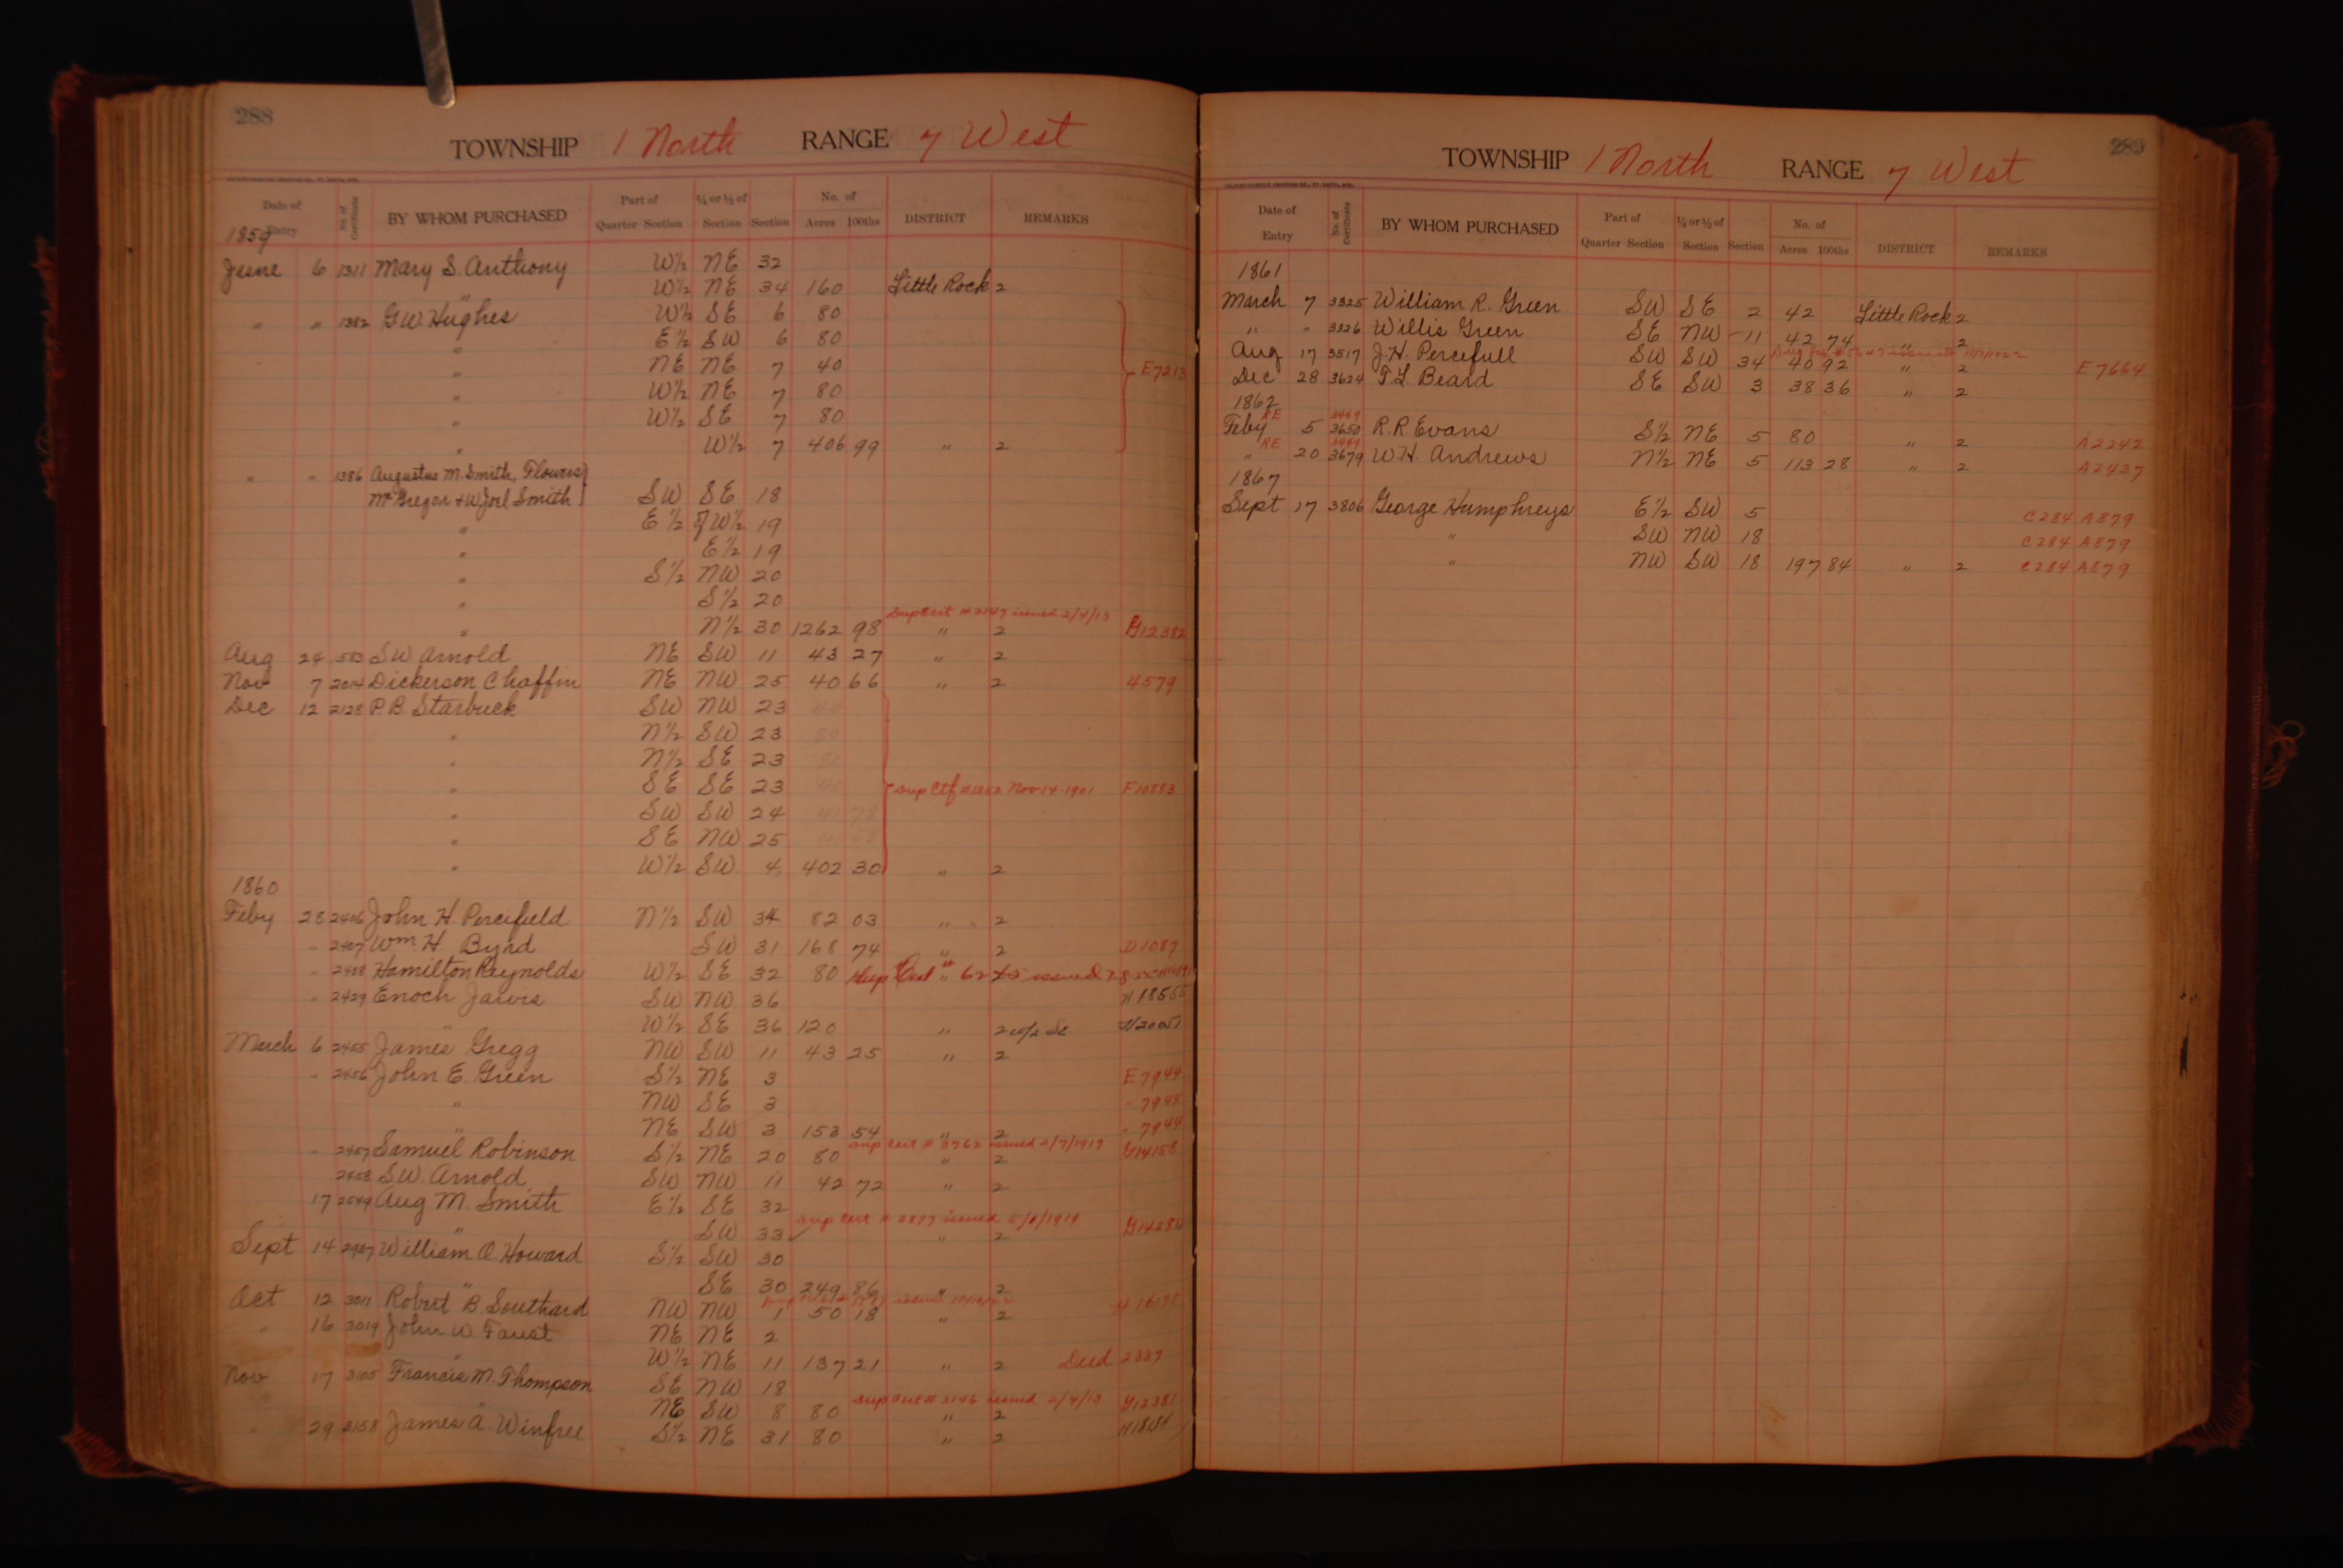 288
TOWNSHIP 1 North RANGE 7 West
Date of Entry No. of Certificate BY WHOM PURCHASED Part of Quarter Section ¼ or ½ of Section Section No. of Acres 100ths DISTRICT REMARKS
1859
June 6 1311 Mary S. Anthony W½ NE 32
" W½ NE 34 160 Little Rock 2
" " 1382 G.W. Hughes W½ SE 6 80
" E½ SW 6 80
" NE NE 7 40 E7213
" W½ NE 7 80
" W½ SE 7 80
" W½ 7 406 99 " 2
" " 1386 Augustus M. Smith, Flowers
McGregor + W. Joel Smith SW SE 18
" E½ of W½ 19
" E½ 19
" S½ NW 20
" S½ 20
Dup Cert # 2147 issued 2/4/13
" N½ 30 1262 98 " 2 G12382
Aug 24 1583 S.W. Arnold NE SW 11 43 27 " 2
Nov 7 2014 Dickerson Chaffin NE NW 25 40 66 " 2 4579
Dec 12 2128 P.B. Starbuck SW NW 23 40
" N½ SW 23 80
" N½ SE 23 80
" SE SE 23 40 Dup Ctf Nov 14-1901 F10883
" SW SW 24
" SE NW 25
" W½ SW 4 402 30 " 2
1860
Feby 28 2406 John H. Percifield N½ SW 34 82 03 " 2
" 2407 Wm H. Byrd SW 31 168 74 " 2 D1087
" 2408 Hamilton Reynolds W½ SE 32 80 Dup Cert issued
" 2429 Enoch Jarvis SW NW 36
" W½ SE 36 120 " 2 W½ SE
March 6 2455 James Gregg NW SW 11 43 25 " 2
" 2456 John E. Green S½ NE 3 E7944
" NW SE 3 " 7944
" NE SW 3 153 54 " 2 " 7944
Dup Cert # 3762 issued 2/7/1919
" 2457 Samuel Robinson S½ NE 20 80 " 2 G14158
2458 S.W. Arnold SW NW 11 42 72 " 2
17 2549 Aug M. Smith E½ SE 32
Dup Cert # 3877 issued 5/8/1919
" SW 33 " 2
Sept 14 2927 William O. Howard S½ SW 30
" SE 30 249 86 " 2
Oct 12 3011 Robert B. Southard NW NW 1 50 18 " 2
" 16 3019 John W. Faust NE NE 2
" W½ NE 11 137 21 " 2 Deed 2337
Nov 17 3105 Francis M. Thompson SE NW 18
Dup Cert # 2146 issued 2/4/13
" NE SW 8 80 " 2 G12381
" 29 3158 James A. Winfree S½ NE 31 80 " 2
289
TOWNSHIP 1 North RANGE 7 West
Date of Entry No. of Certificate BY WHOM PURCHASED Part of Quarter Section ¼ or ½ of Section Section No. of Acres 100ths DISTRICT REMARKS
1861
March 7 3325 William R. Green SW SE 2 42 Little Rock 2
" " 3326 Willis Green SE NW 11 42 74 " 2
Aug 17 3517 J.H. Percefull SW SW 34 40 92 " 2 E7664
Dec 28 3624 T.L. Beard SE SW 3 38 36 " 2
1862
RE
Feby 5 3650 R.R. Evans S½ NE 5 80 " 2 A2242
RE
" 20 3679 W.H. Andrews N½ NE 5 113 28 " 2 A2437
1867
Sept 17 3806 George Humphreys E½ SW 5 C284 A879
" SW NW 18 C284 A879
" NW SW 18 197 84 " 2 C284 A879